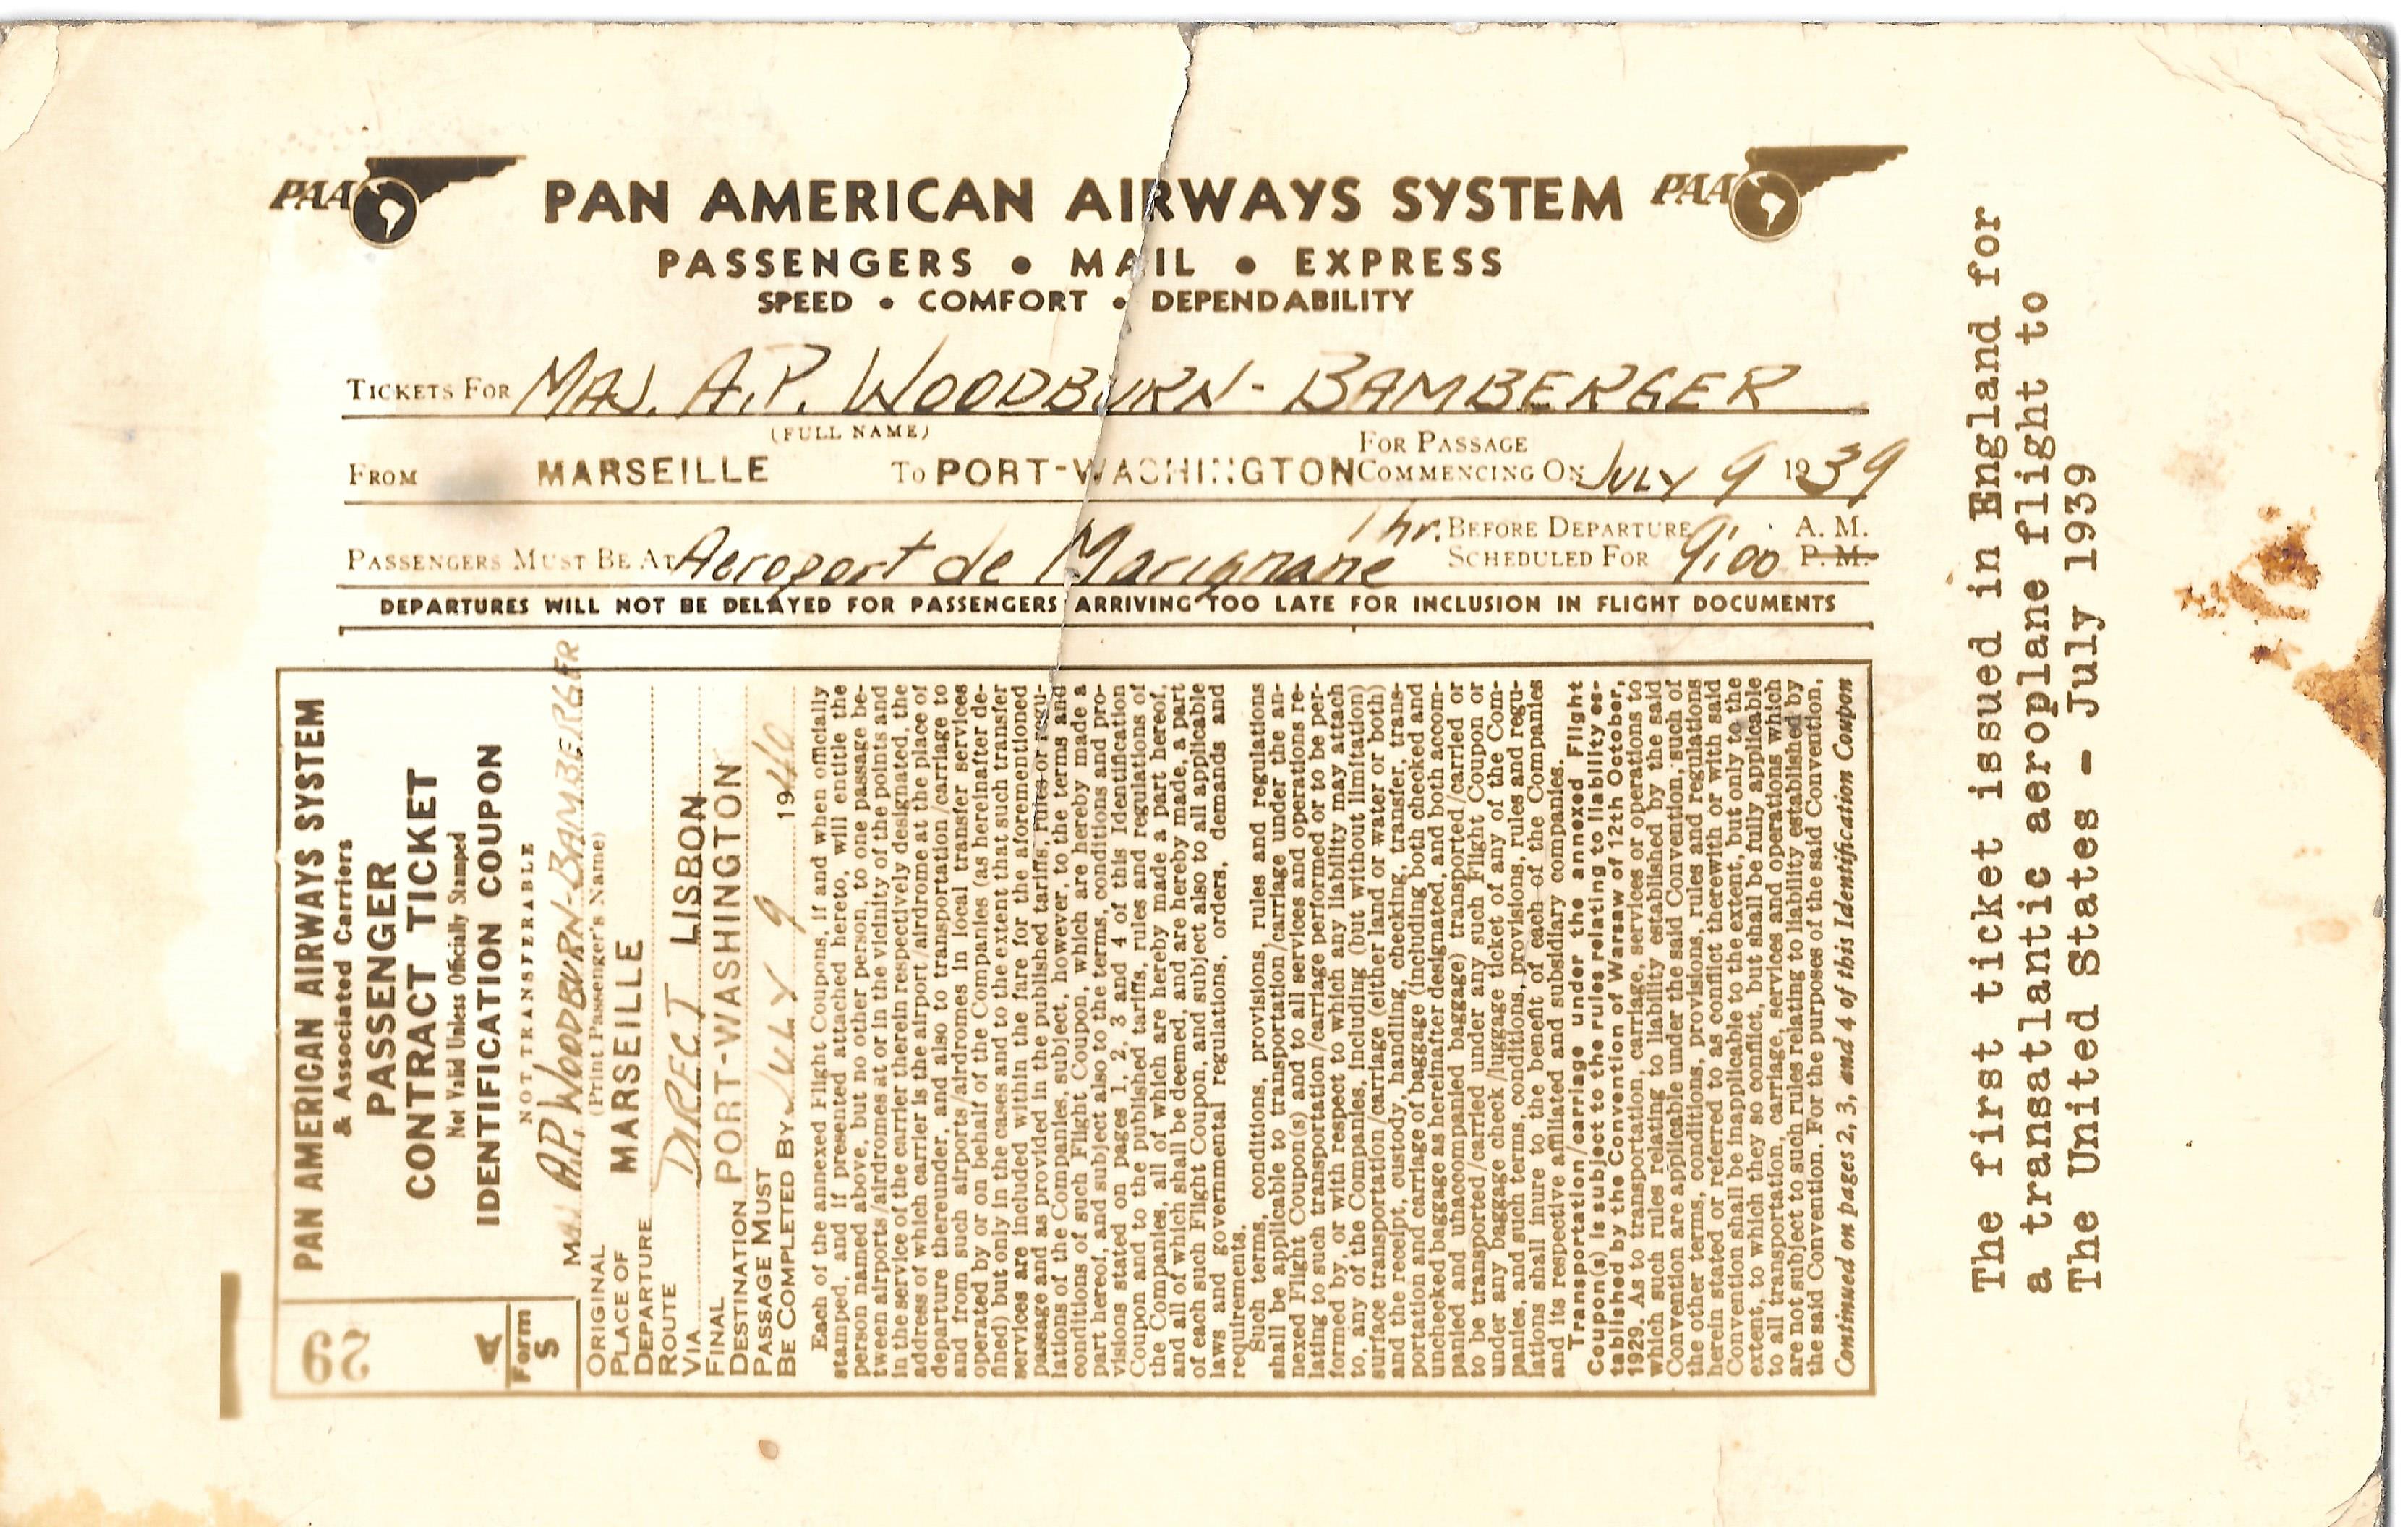 PAA PAN AMERICAN AIRWAYS SYSTEM PAA
PASSENGERS • MAIL • EXPRESS
SPEED • COMFORT • DEPENDABILITY
TICKETS FOR MAJ. A.P. WOODBURN-BAMBERGER
(FULL NAME)
FROM MARSEILLE TO PORT-WASHINGTON FOR PASSAGE COMMENCING ON JULY 9 1939
PASSENGERS MUST BE AT Aeroport de Marignane 1 hr. BEFORE DEPARTURE SCHEDULED FOR 9:00 A. M. P. M.
DEPARTURES WILL NOT BE DELAYED FOR PASSENGERS ARRIVING TOO LATE FOR INCLUSION IN FLIGHT DOCUMENTS
29
A
Form
5
PAN AMERICAN AIRWAYS SYSTEM
& Associated Carriers
PASSENGER
CONTRACT TICKET
Not Valid Unless Officially Stamped
IDENTIFICATION COUPON
NOT TRANSFERABLE
MAJ A.P. WOODBURN-BAMBERGER
(Print Passenger's Name)
ORIGINAL
PLACE OF
DEPARTURE MARSEILLE
ROUTE
VIA DIRECT LISBON
FINAL
DESTINATION PORT-WASHINGTON
PASSAGE MUST
BE COMPLETED BY JULY 9 1940
Each of the annexed Flight Coupons, if and when officially
stamped, and if presented attached hereto, will entitle the
person named above, but no other person, to one passage be-
tween airports/airdromes at or in the vicinity of the points and
in the service of the carrier therein respectively designated, the
address of which carrier is the airport/airdrome at the place of
departure thereunder, and also to transportation/carriage to
and from such airports/airdromes in local transfer services
operated by or on behalf of the Companies (as hereinafter de-
fined) but only in the cases and to the extent that such transfer
services are included within the fare for the aforementioned
passage and as provided in the published tariffs, rules or regu-
lations of the Companies, subject, however, to the terms and
conditions of such Flight Coupon, which are hereby made a
part hereof, and subject also to the terms, conditions and pro-
visions stated on pages 1, 2, 3 and 4 of this Identification
Coupon and to the published tariffs, rules and regulations of
the Companies, all of which are hereby made a part hereof,
and all of which shall be deemed, and are hereby made, a part
of each such Flight Coupon, and subject also to all applicable
laws and governmental regulations, orders, demands and
requirements.
Such terms, conditions, provisions, rules and regulations
shall be applicable to transportation/carriage under the an-
nexed Flight Coupon(s) and to all services and operations re-
lating to such transportation/carriage performed or to be per-
formed by, or with respect to which any liability may attach
to, any of the Companies, including (but without limitation)
surface transportation/carriage (either land or water or both)
and the receipt, custody, handling, checking, transfer, trans-
portation and carriage of baggage (including both checked and
unchecked baggage as hereinafter designated, and both accom-
panied and unaccompanied baggage) transported/carried or
to be transported/carried under any such Flight Coupon or
under any baggage check/luggage ticket of any of the Com-
panies, and such terms, conditions, provisions, rules and regu-
lations shall inure to the benefit of each of the Companies
and its respective affiliated and subsidiary companies.
Transportation/carriage under the annexed Flight
Coupon(s) is subject to the rules relating to liability es-
tablished by the Convention of Warsaw of 12th October,
1929. As to transportation, carriage, services or operations to
which such rules relating to liability established by the said
Convention are applicable under the said Convention, such of
the other terms, conditions, provisions, rules and regulations
herein stated or referred to as conflict therewith or with said
Convention shall be inapplicable to the extent, but only to the
extent, to which they so conflict, but shall be fully applicable
to all transportation, carriage, services and operations which
are not subject to such rules relating to liability established by
the said Convention. For the purposes of the said Convention,
Continued on pages 2, 3, and 4 of this Identification Coupon
The first ticket issued in England for
a transatlantic aeroplane flight to
The United States - July 1939